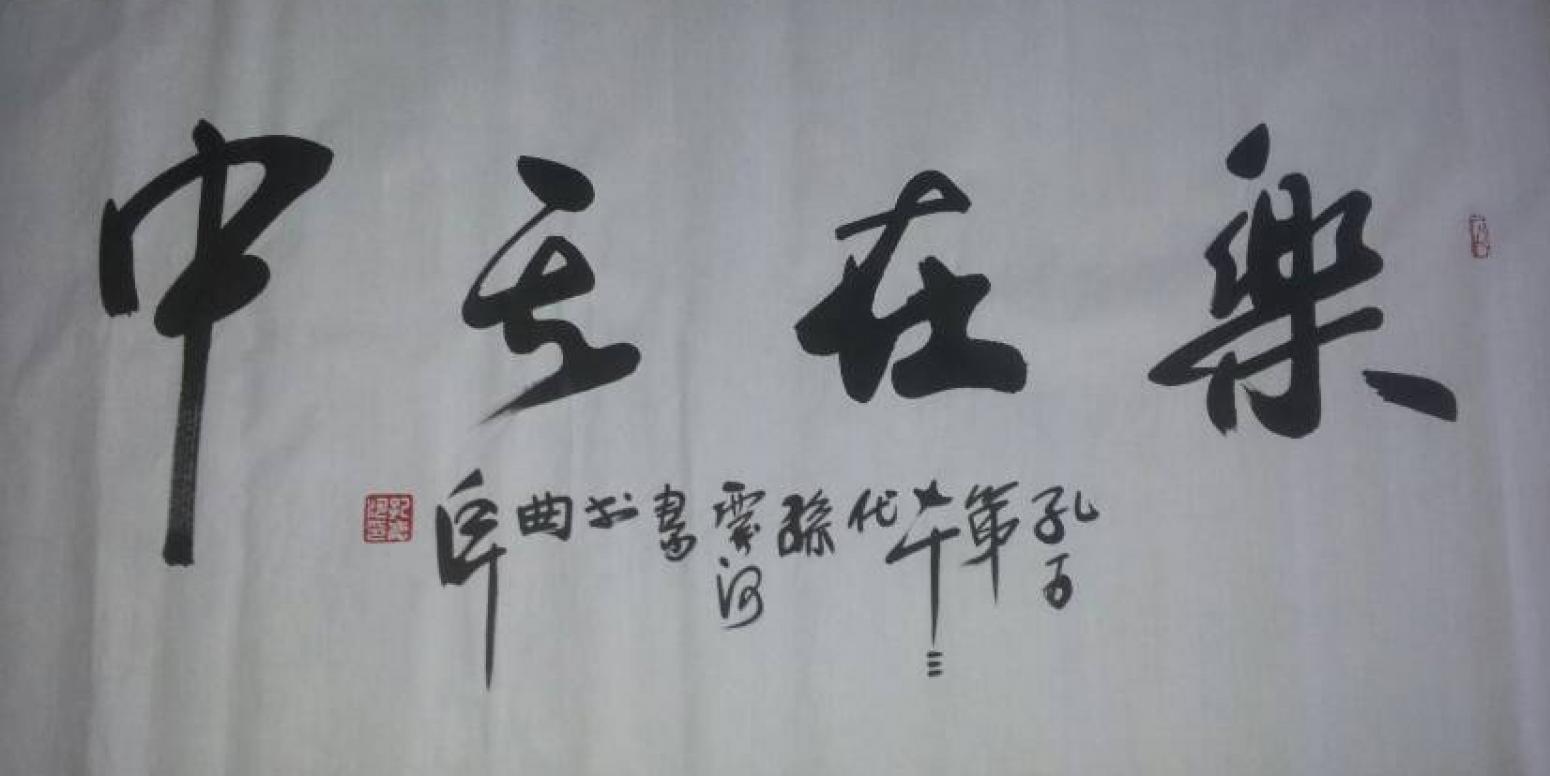 樂在其中
孔子第七十三代孫雲河書於曲阜